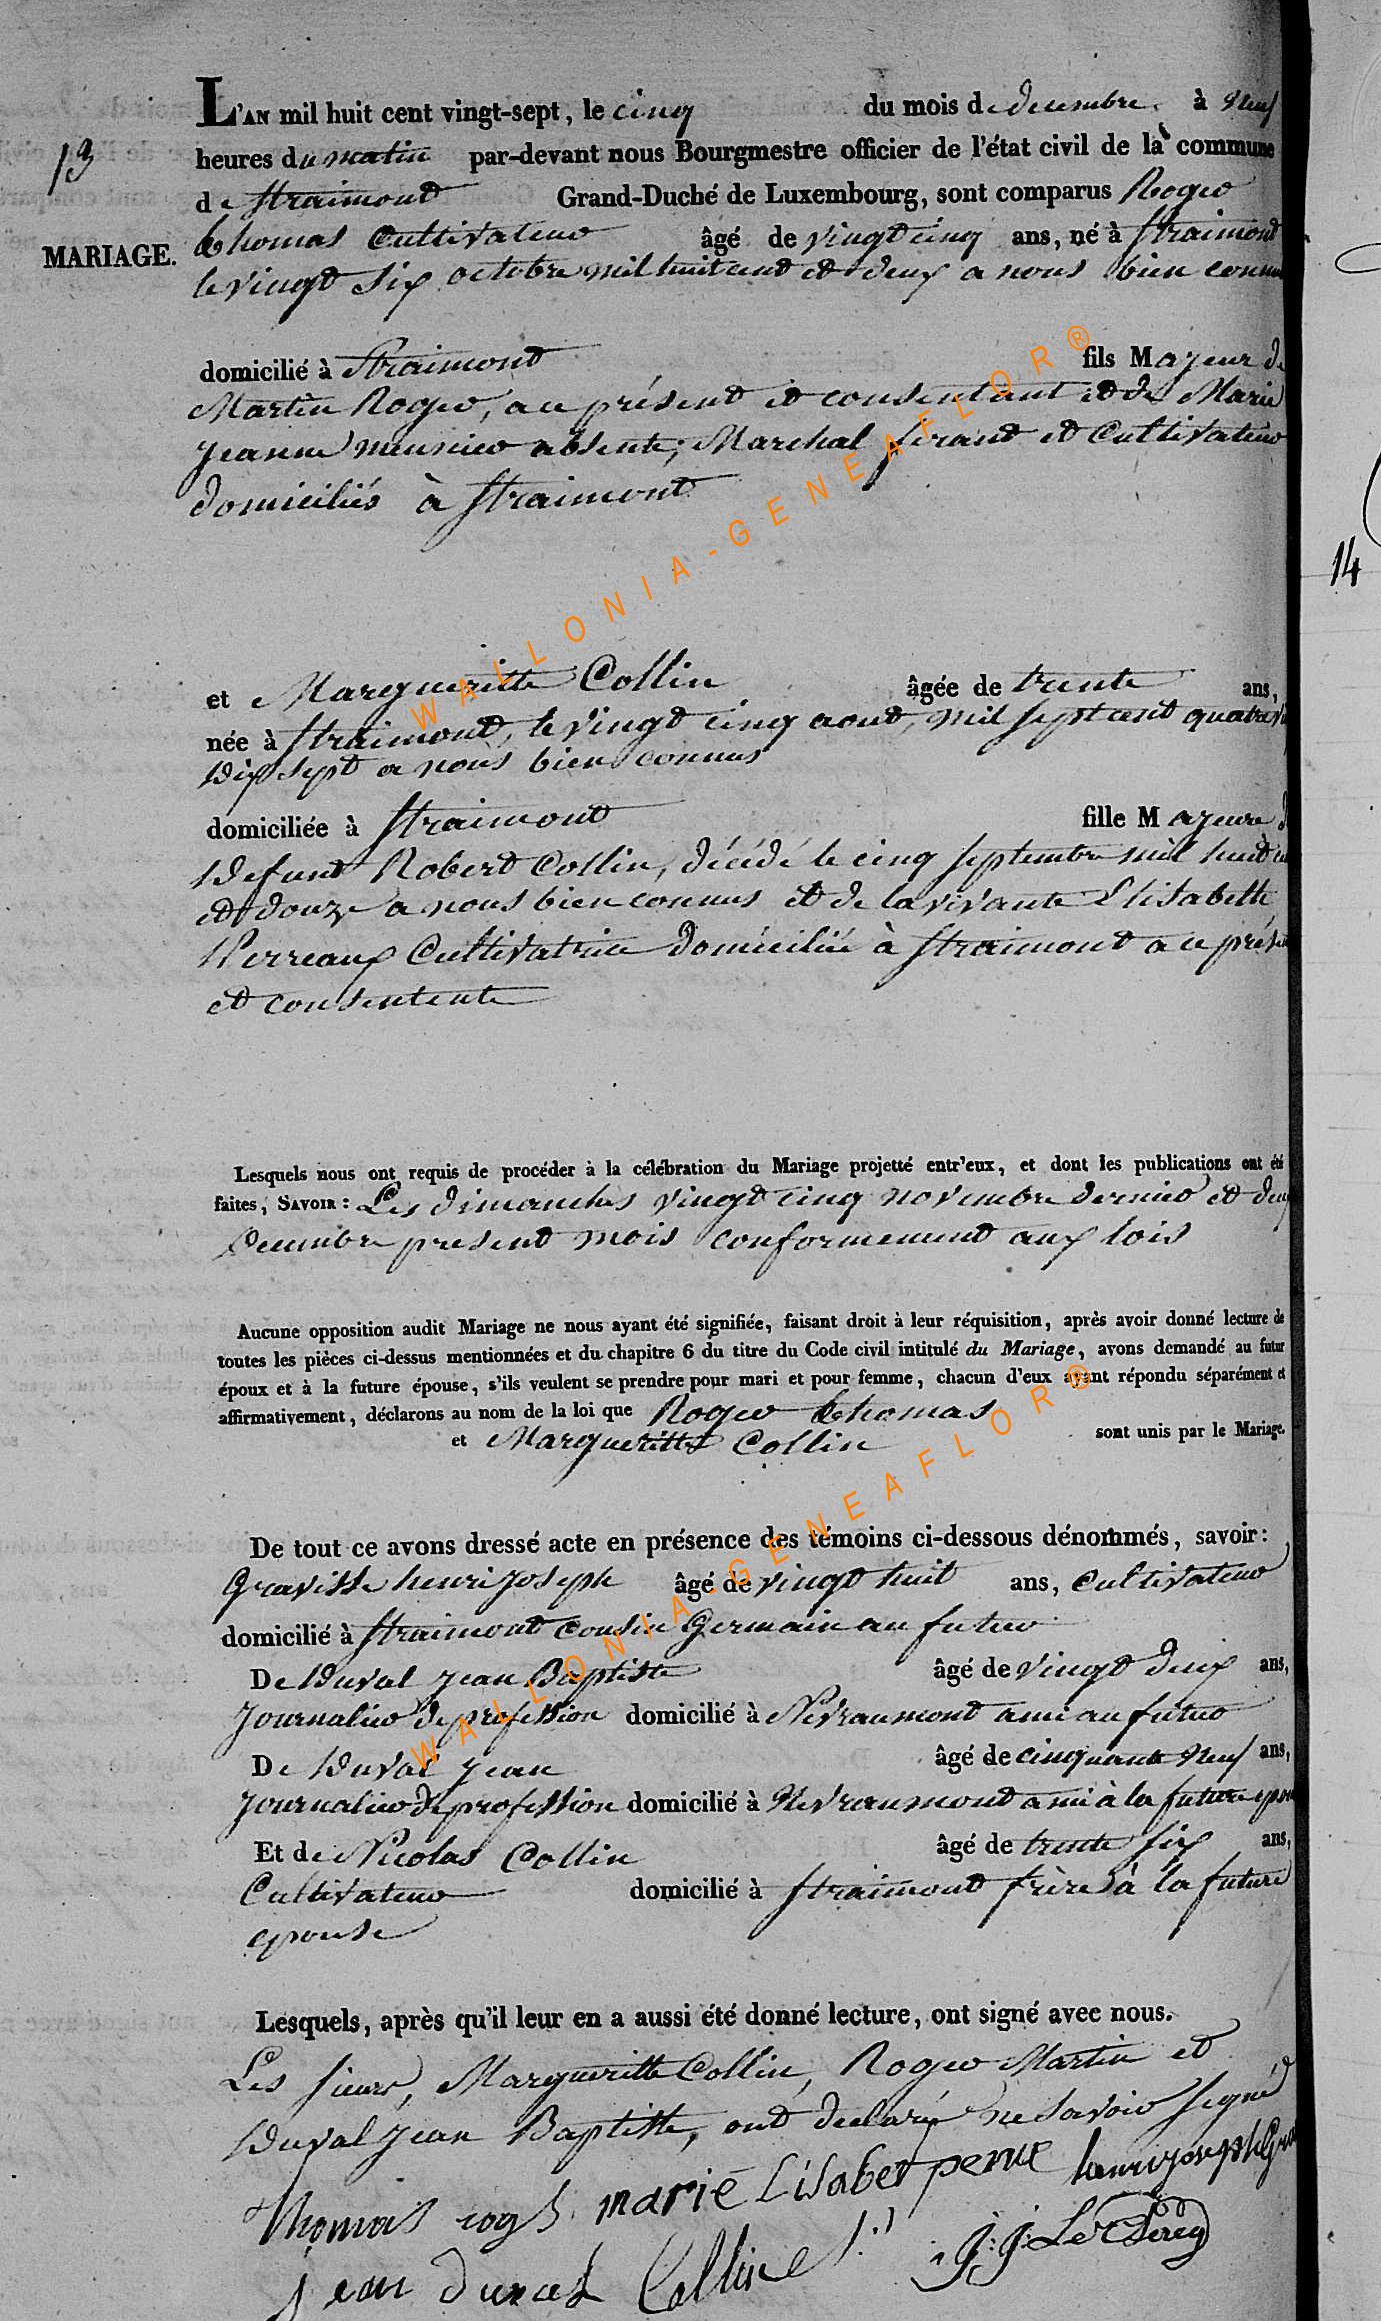 L'AN mil huit cent vingt-sept, le cinq du mois de decembre à neuf
13
heures du matin par-devant nous Bourgmestre officier de l'état civil de la commune
de Straimont Grand-Duché de Luxembourg, sont comparus Roger
Thomas Cultivateur âgé de vingt cinq ans, né à Straimont
MARIAGE.
le vingt six octobre mil huit cent et deux a nous bien connu
domicilié à Straimont fils Majeur de
Martin Roger, a ce présent et consentant et de Marie
Jeanne meunier absente; Marchal ferant et Cultivateur
domiciliés à Straimont
14
et Margueritte Collin âgée de trente ans,
née à Straimont, le vingt cinq aout, mil sept cent quatre
Dix sept a nous bien connus
domiciliée à Straimont fille Majeure
Defunt Robert Collin, décédé le cinq septembre mil huit
et douze a nous bien connus et de la vivante Elisabeth
Perreaux Cultivatrice domiciliée à Straimont a ce
et consentente
Lesquels nous ont requis de procéder à la célébration du Mariage projetté entr'eux, et dont les publications ont été
faites, SAVOIR : Les dimanches vingt cinq novembre dernier et deux
Decembre present mois conformement aux lois
Aucune opposition audit Mariage ne nous ayant été signifiée, faisant droit à leur réquisition, après avoir donné lecture de
toutes les pièces ci-dessus mentionnées et du chapitre 6 du titre du Code civil intitulé du Mariage, avons demandé au futur
époux et à la future épouse, s'ils veulent se prendre pour mari et pour femme, chacun d'eux ayant répondu séparément et
affirmativement, déclarons au nom de la loi que Roger Thomas
et Margueritte Collin sont unis par le Mariage.
De tout ce avons dressé acte en présence des témoins ci-dessous dénommés, savoir:
Gravisse henri joseph âgé de vingt huit ans, Cultivateur
domicilié à Straimont cousin Germain au futur
De Duval jean Baptiste âgé de vingt deux ans,
Journalier de profession domicilié à Nevraumont ami au futur
De Duval jean âgé de cinquante neuf ans,
Journalier de profession domicilié à Nevraumont ami à la future
Et de Nicolas Collin âgé de trente six ans,
Cultivateur domicilié à Straimont frère à la future
epouse
Lesquels, après qu'il leur en a aussi été donné lecture, ont signé avec nous.
Les sieurs, Margueritte Collin, Roger Martin et
Duval jean Baptiste, ont declaré ne savoir signé
Thomas marie Lisabet henri joseph
jean Collin J: J: Le Clercq
WALLONIA-GENEAFLOR®
WALLONIA-GENEAFLOR®